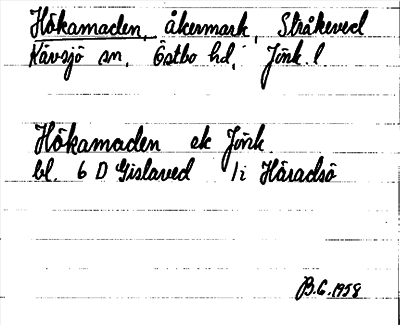 Hökamaden, åkermark, Stråkeved
Kävsjö sn, Östbo hd, Jönk. l.
Hökamaden ek Jönk.
bl. 6 D Gislaved 1i Häradsö
B.G. 1958